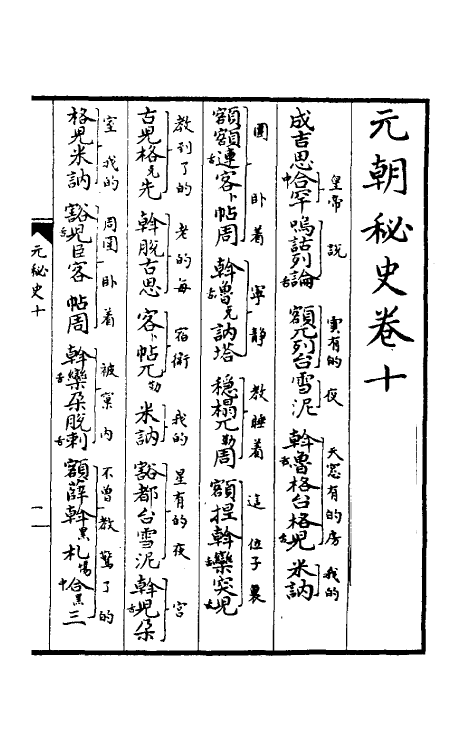 元朝秘史卷十
皇帝 說 雲有的 夜 天窓有的房 我的
成吉思中合罕 嗚詁列舌論 額兀列台雪泥 斡魯舌格台格兒舌 米訥
圍 卧着 寧靜 教睡着 這 位子裏
額額連舌客卜帖周 斡魯舌兀訥塔 穩榻兀勒周 額捏斡欒舌突兒舌
教到了的 老的每 宿衛 我的 星有的夜 宮
古兒舌格兀先 斡脫古思 客卜帖兀勒 米訥 豁都台雪泥 斡兒舌朶
室 我的 周圍 卧着 被窠內 不曾教驚了的
格兒米訥 豁兒舌臣客 帖周 斡欒舌朶脫剌舌 額薛斡黑札惕中合黑三
元秘史十
一